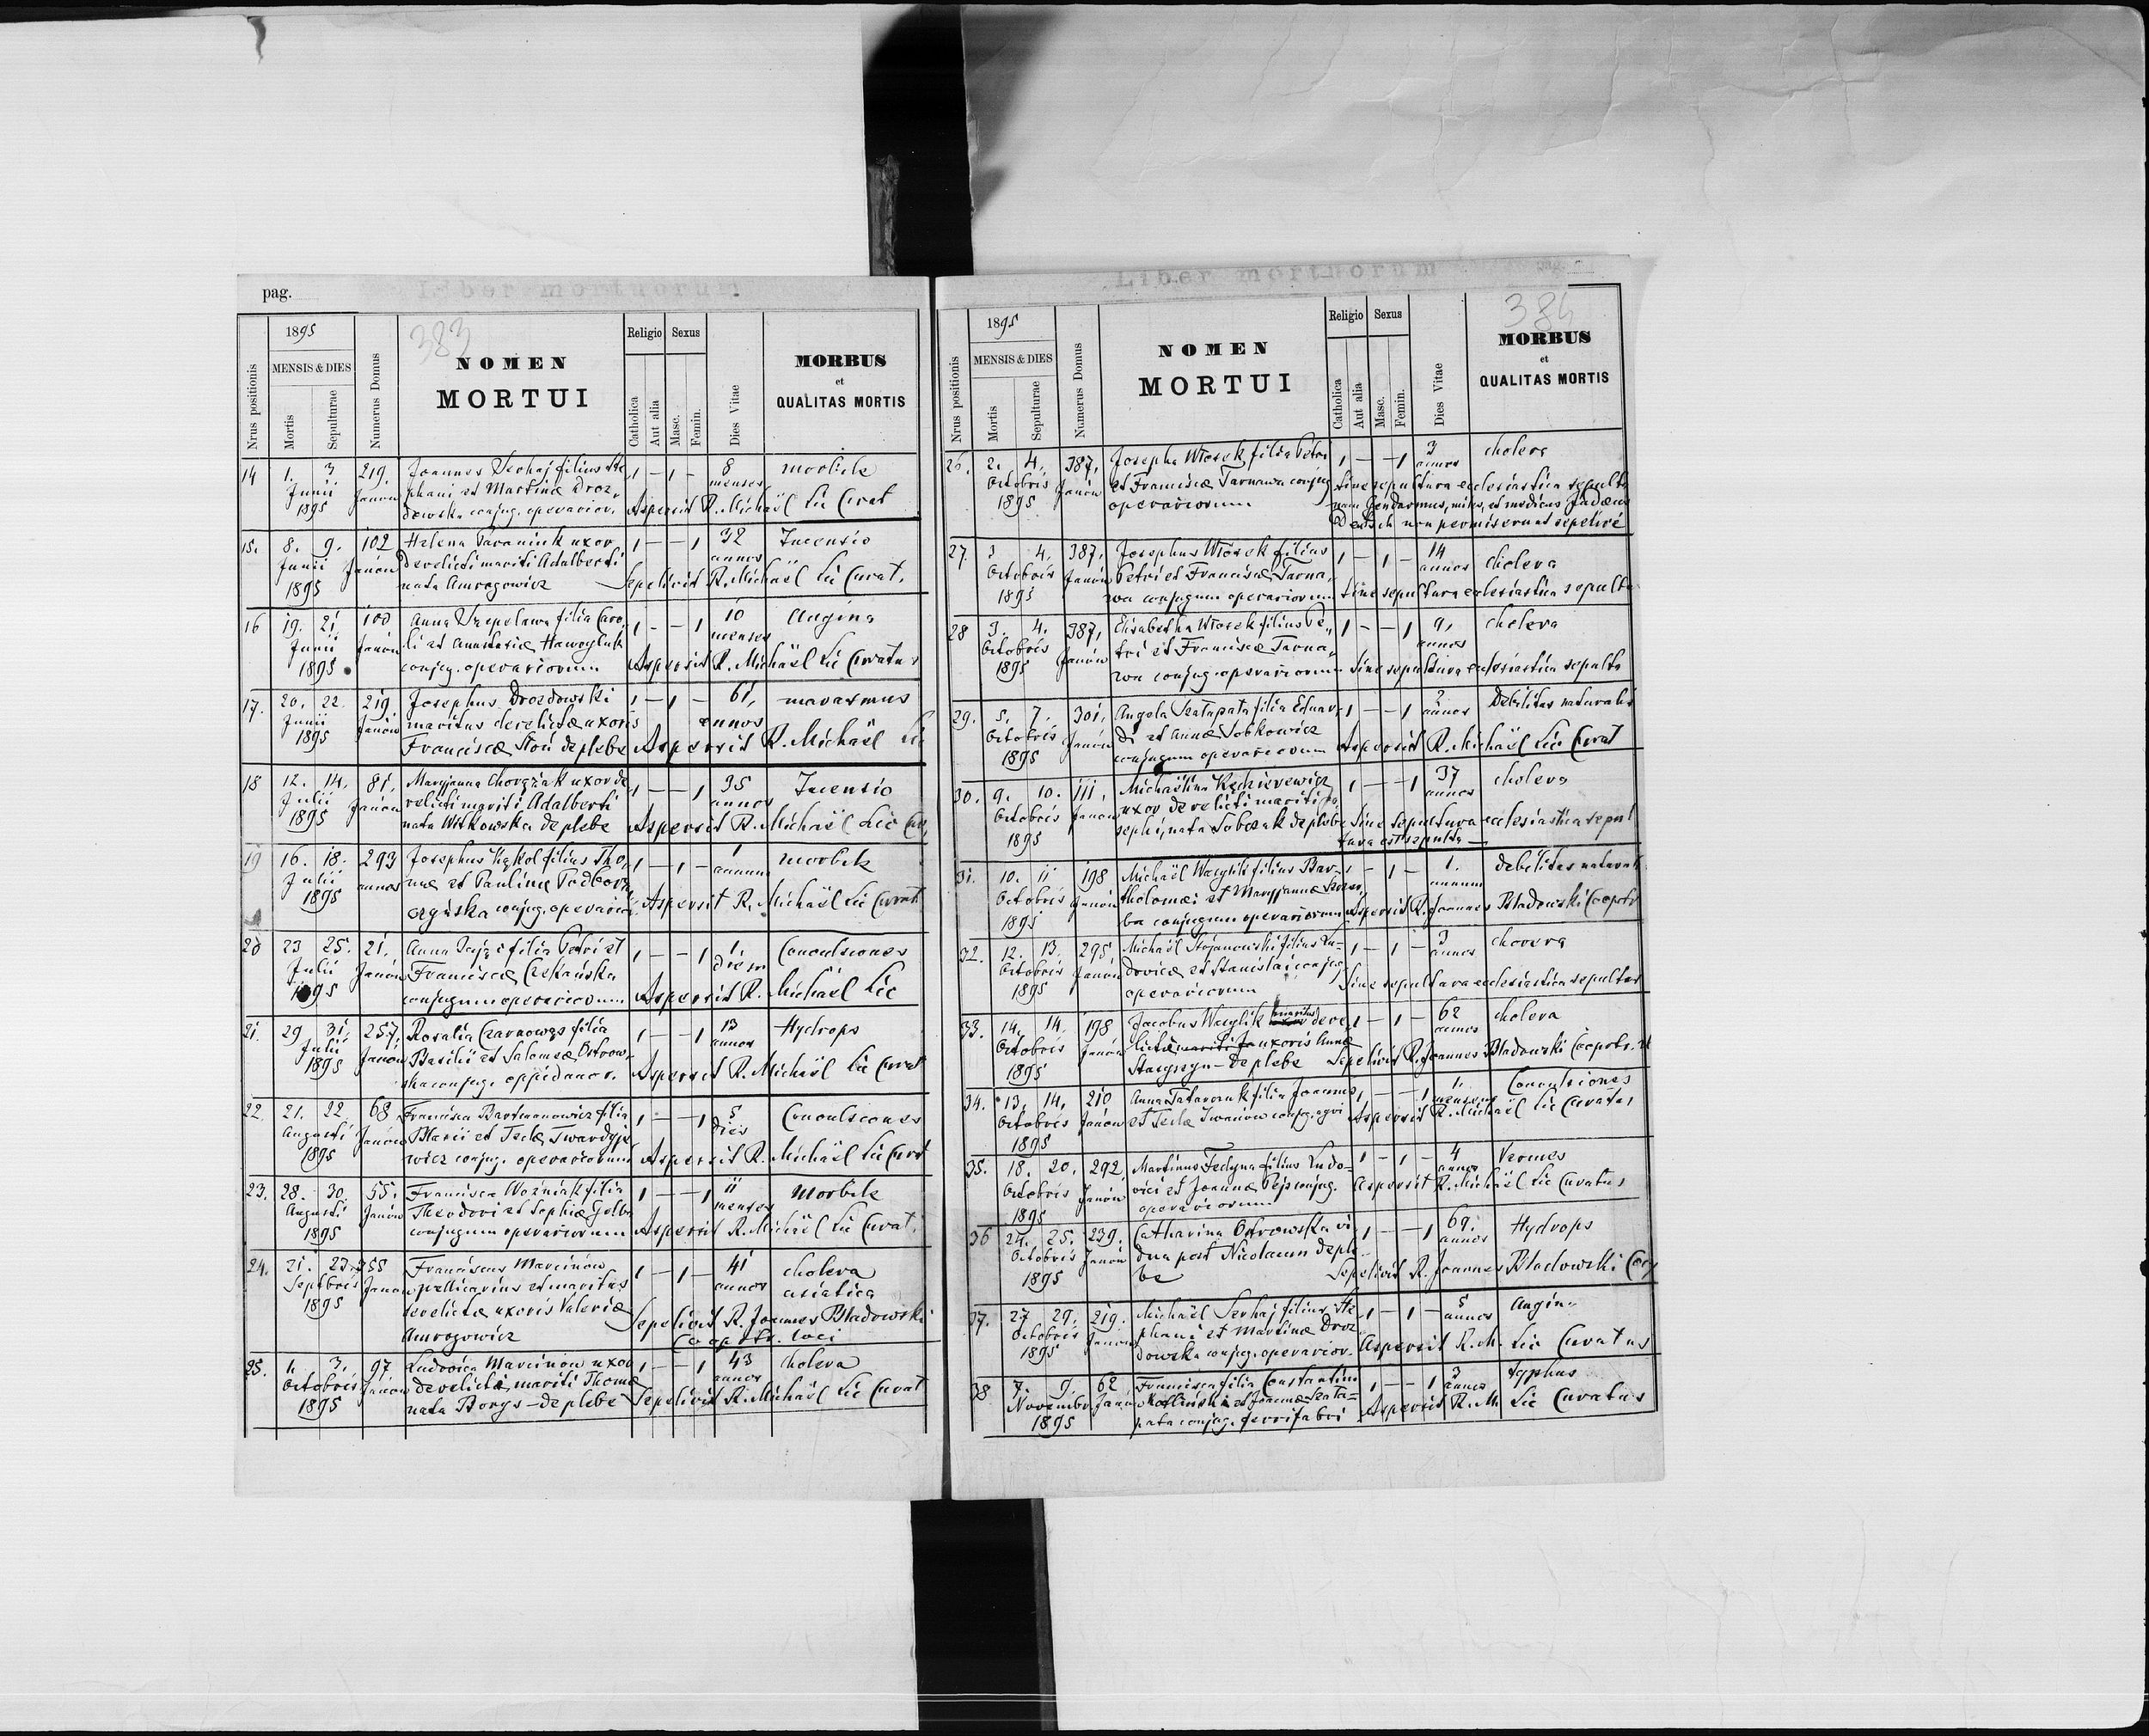 pag.
Liber mortuorum
383
1895
Nrus positionis
MENSIS & DIES
Mortis
Sepulturae
Numerus Domus
NOMEN
MORTUI
Religio
Catholica
Aut alia
Sexus
Masc.
Femin.
Dies Vitae
MORBUS
et
QUALITAS MORTIS
14 1. 3 219. Joannes Serhaj filius Ste 1 – 1 – 8 morbile
Junii Janów phani et Martinæ Droz, menses
1895 dowska conjug. operarior. Aspersit R. Michaël Lic Curat
15. 8. 9. 102 Helena Paraniuk uxor 1 – – 1 32 Incensio
Junii Janów derelicti mariti Adalberti annos
1895 nata Amrogowicz Sepelivit R. Michaël Lic Curat.
16 19. 21 100 Anna filia Caro, 1 – – 1 10 Angina
Junii Janów li et Anastasiæ menses
1895 conjug. operariorum Aspersit R. Michaël Lic Curatus
17. 20. 22. 219. Josephus Drozdowski 1 – 1 – 61, marasmus
Junii Janów maritus derelictæ uxoris annos
1895 Franciscæ Stoń de plebe Aspersit R. Michaël Lic
18 12. 14. 81. Maryjanna uxor de 1 – – 1 35 Incensio
Julii Janów relicti mariti Adalberti annos
1895 nata Witkowska de plebe Aspersit R. Michaël Lic Cur,
19 16. 18. 293 Josephus Kąkol filius Tho, 1 – 1 – 1 morbile
Julii annos mæ et Paulinæ Podbora, annum
1895 czyńska conjug. operarior. Aspersit R. Michaël Lic Curat
20 23 25. 21. Anna filia Petri et 1 – – 1 1. Convulsiones
Julii Janów Franciscæ Czekańska diem
1895 conjugum operariorum Aspersit R. Michaël Lic
21. 29 31. 257, Rosalia filia 1 – – 1 13 Hydrops
Julii Janów Basilii et Salomeæ Ostrow, annos
1895 ska conjug. oppidanor. Aspersit R. Michaël Lic Curat
22. 21. 22. 68 Francisca Bartmanowicz filia 1 – – 1 5 Convulsiones
Augusti Janów Blasii et Teclæ Twardyje dies
1895 wicz conjug. operariorum Aspersit R. Michaël Lic Curat
23. 28. 30. 55. Francisca Woźniak filia 1 – – 1 11 Morbile
Augusti Janów Theodori et Sophiæ menses
1895 conjugum operariorum Aspersit R. Michaël Lic Curat.
24. 21. 23. 355 Franciscus Marcinów 1 – 1 – 41 cholera
Septbris Janów pellicarius et maritus annos asiatica
1895 derelictæ uxoris Valeriæ Sepelivit R. Joannes Bładowski
Amrogowicz Cooptr. loci
25. 1. 3. 97 Ludovica Marcinów uxor 1 – – 1 43 cholera
Octobris Janów derelicti mariti Thomæ annos
1895 nata Borys – de plebe Sepelivit R. Michaël Lic Curat
Liber mortuorum
pag.
384
1895
Nrus positionis
MENSIS & DIES
Mortis
Sepulturae
Numerus Domus
NOMEN
MORTUI
Religio
Catholica
Aut alia
Sexus
Masc.
Femin.
Dies Vitae
MORBUS
et
QUALITAS MORTIS
26. 2. 4. 387, Josepha Wiosek filia Petri 1 – – 1 3 cholera
Octobris Janów et Franciscæ Tarnawa conjug annos sine sepultura ecclesiastica sepulta
1895 operariorum nam Gendarmus, miles, et medicus Judæus
Deutsch non permiserunt sepelire
27. 3 4. 387, Josephus Wiosek filius 1 – 1 – 14 cholera
Octobris Janów Petri et Franciscæ Tarna, annos
1895 wa conjugum operariorum Sine sepultura ecclesiastica sepulta
28 3. 4. 387, Elisabetha Wiosek filius Pe, 1 – – 1 9, cholera
Octobris Janów tri et Franciscæ Tarna, annos
1895 wa conjug operariorum Sine sepultura ecclesiastica sepulta
29. 5. 7. 301. Angela Szatapata filia Eduar, 1 – – 1 2 Debilitas naturalis
Octobris Janów di et Annæ Sobkowicz annos
1895 conjugum operariorum Aspersit R. Michaël Lic Curat
30. 9. 10. 111. Michaëlina uxor derelicti mariti Jo, 1 – – 1 37 cholera
Octobris Janów sephi, nata Sobczak de plebe annos
1895 Sine sepultura ecclesiastica sepul
tura est sepulta –
31. 10. 11 198 Michaël Wasylik filius Bar- 1 – 1 – 1. debilitas naturalis
Octobris Janów tholomæi et Maryjannæ annum
1895 ba conjugum operariorum Aspersit R. Joannes Bładowski Cooptr
32. 12. 13. 295 Michaël Stojanowski filius Lu- 1 – 1 – 3 chorera
Octobris Janów dovicæ et Stanislai conjug annos
1895 operariorum Sine sepultura ecclesiastica sepultus
33. 14. 14. 198 Jacobus Wasylik maritus dere, 1 – 1 – 62 cholera
Octobris Janów lictæ mariti Jo uxoris Annæ annos
1895 de plebe Sepelivit R. Joannes Bładowski Cooptr.
34. 13. 14. 210 Anna filia Joannes 1 – – 1 1. Convulsiones
Octobris Janów et Teclæ Iwanów conjug. agri mensem
1895 Aspersit R. Michaël Lic Curatus
35. 18. 20. 292 Martinus Fedyna filius Ludo- 1 – 1 – 4 Vermes
Octobris Janów vici et Joannæ conjug. annos
1895 operariorum Aspersit R. Michaël Lic Curatus
36 24. 25. 239. Catharina Ostrowska vi 1 – – 1 69. Hydrops
Octobris Janów dua post Nicolaum de ple annos
1895 be Sepelivit R. Joannes Bładowski Coo
37. 27 29. 219. Michaël Serhaj filius Ste 1 – 1 – 5 Angina
Octobris Janów phani et Martinæ Droz annos
1895 dowska conjug. operarior. Aspersit R. M. Lic Curatus
38 7. 9. 62 Francisca filia Constantini 1 – – 1 3 typhus
Novembr Janów Kotlinski et Joannæ Szata- annos
1895 pata conjug. ferrifabri Aspersit R. M. Lic Curatus